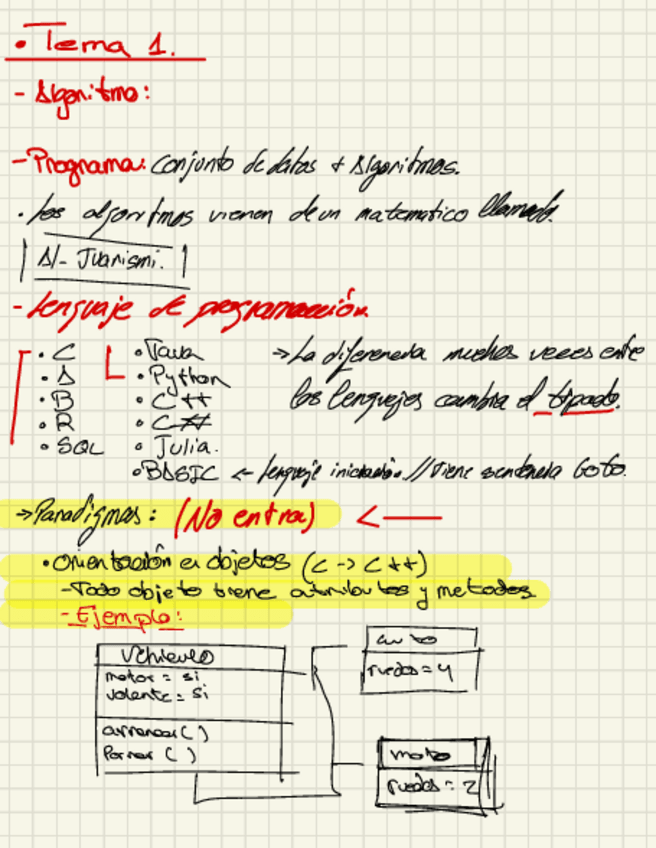 • Tema 1.
- Algoritmo:
- Programa: conjunto de datos + Algoritmos.
• Los algoritmos vienen de un matematico llamado.
Al- Juarismi.
- Lenguaje de programación.
• C
• A
• B
• R
• SQL
• Java
• Python
• C++
• C#
• Julia.
• BASIC ← lenguaje iniciación. // Tiene sentencia GoTo.
→ La diferencia muchas veces entre
los lenguajes cambia el tipado.
→ Paradigmas: (No entra) ←
• Orientación a objetos (C -> C++)
- Todo objeto tiene atributos y metodos
- Ejemplo:
Vehiculo
motor = si
volante = si
arrancar ( )
Parar ( )
auto
ruedas = 4
moto
ruedas = 2